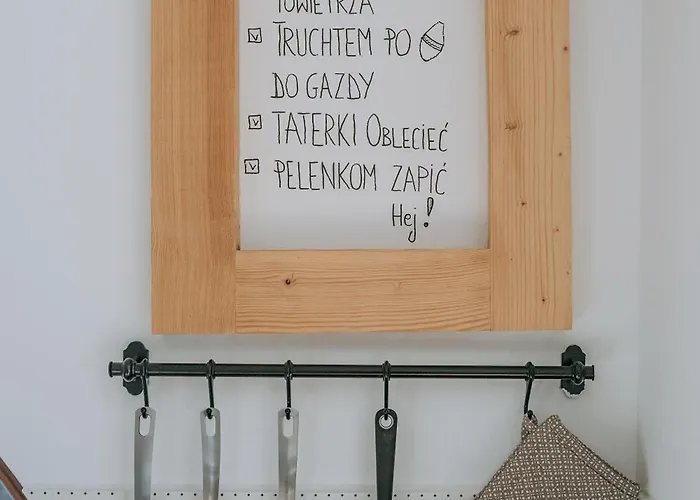 POWIETRZA
TRUCHTEM PO
DO GAZDY
TATERKI OBLECIEĆ
PELENKOM ZAPIĆ
Hej!